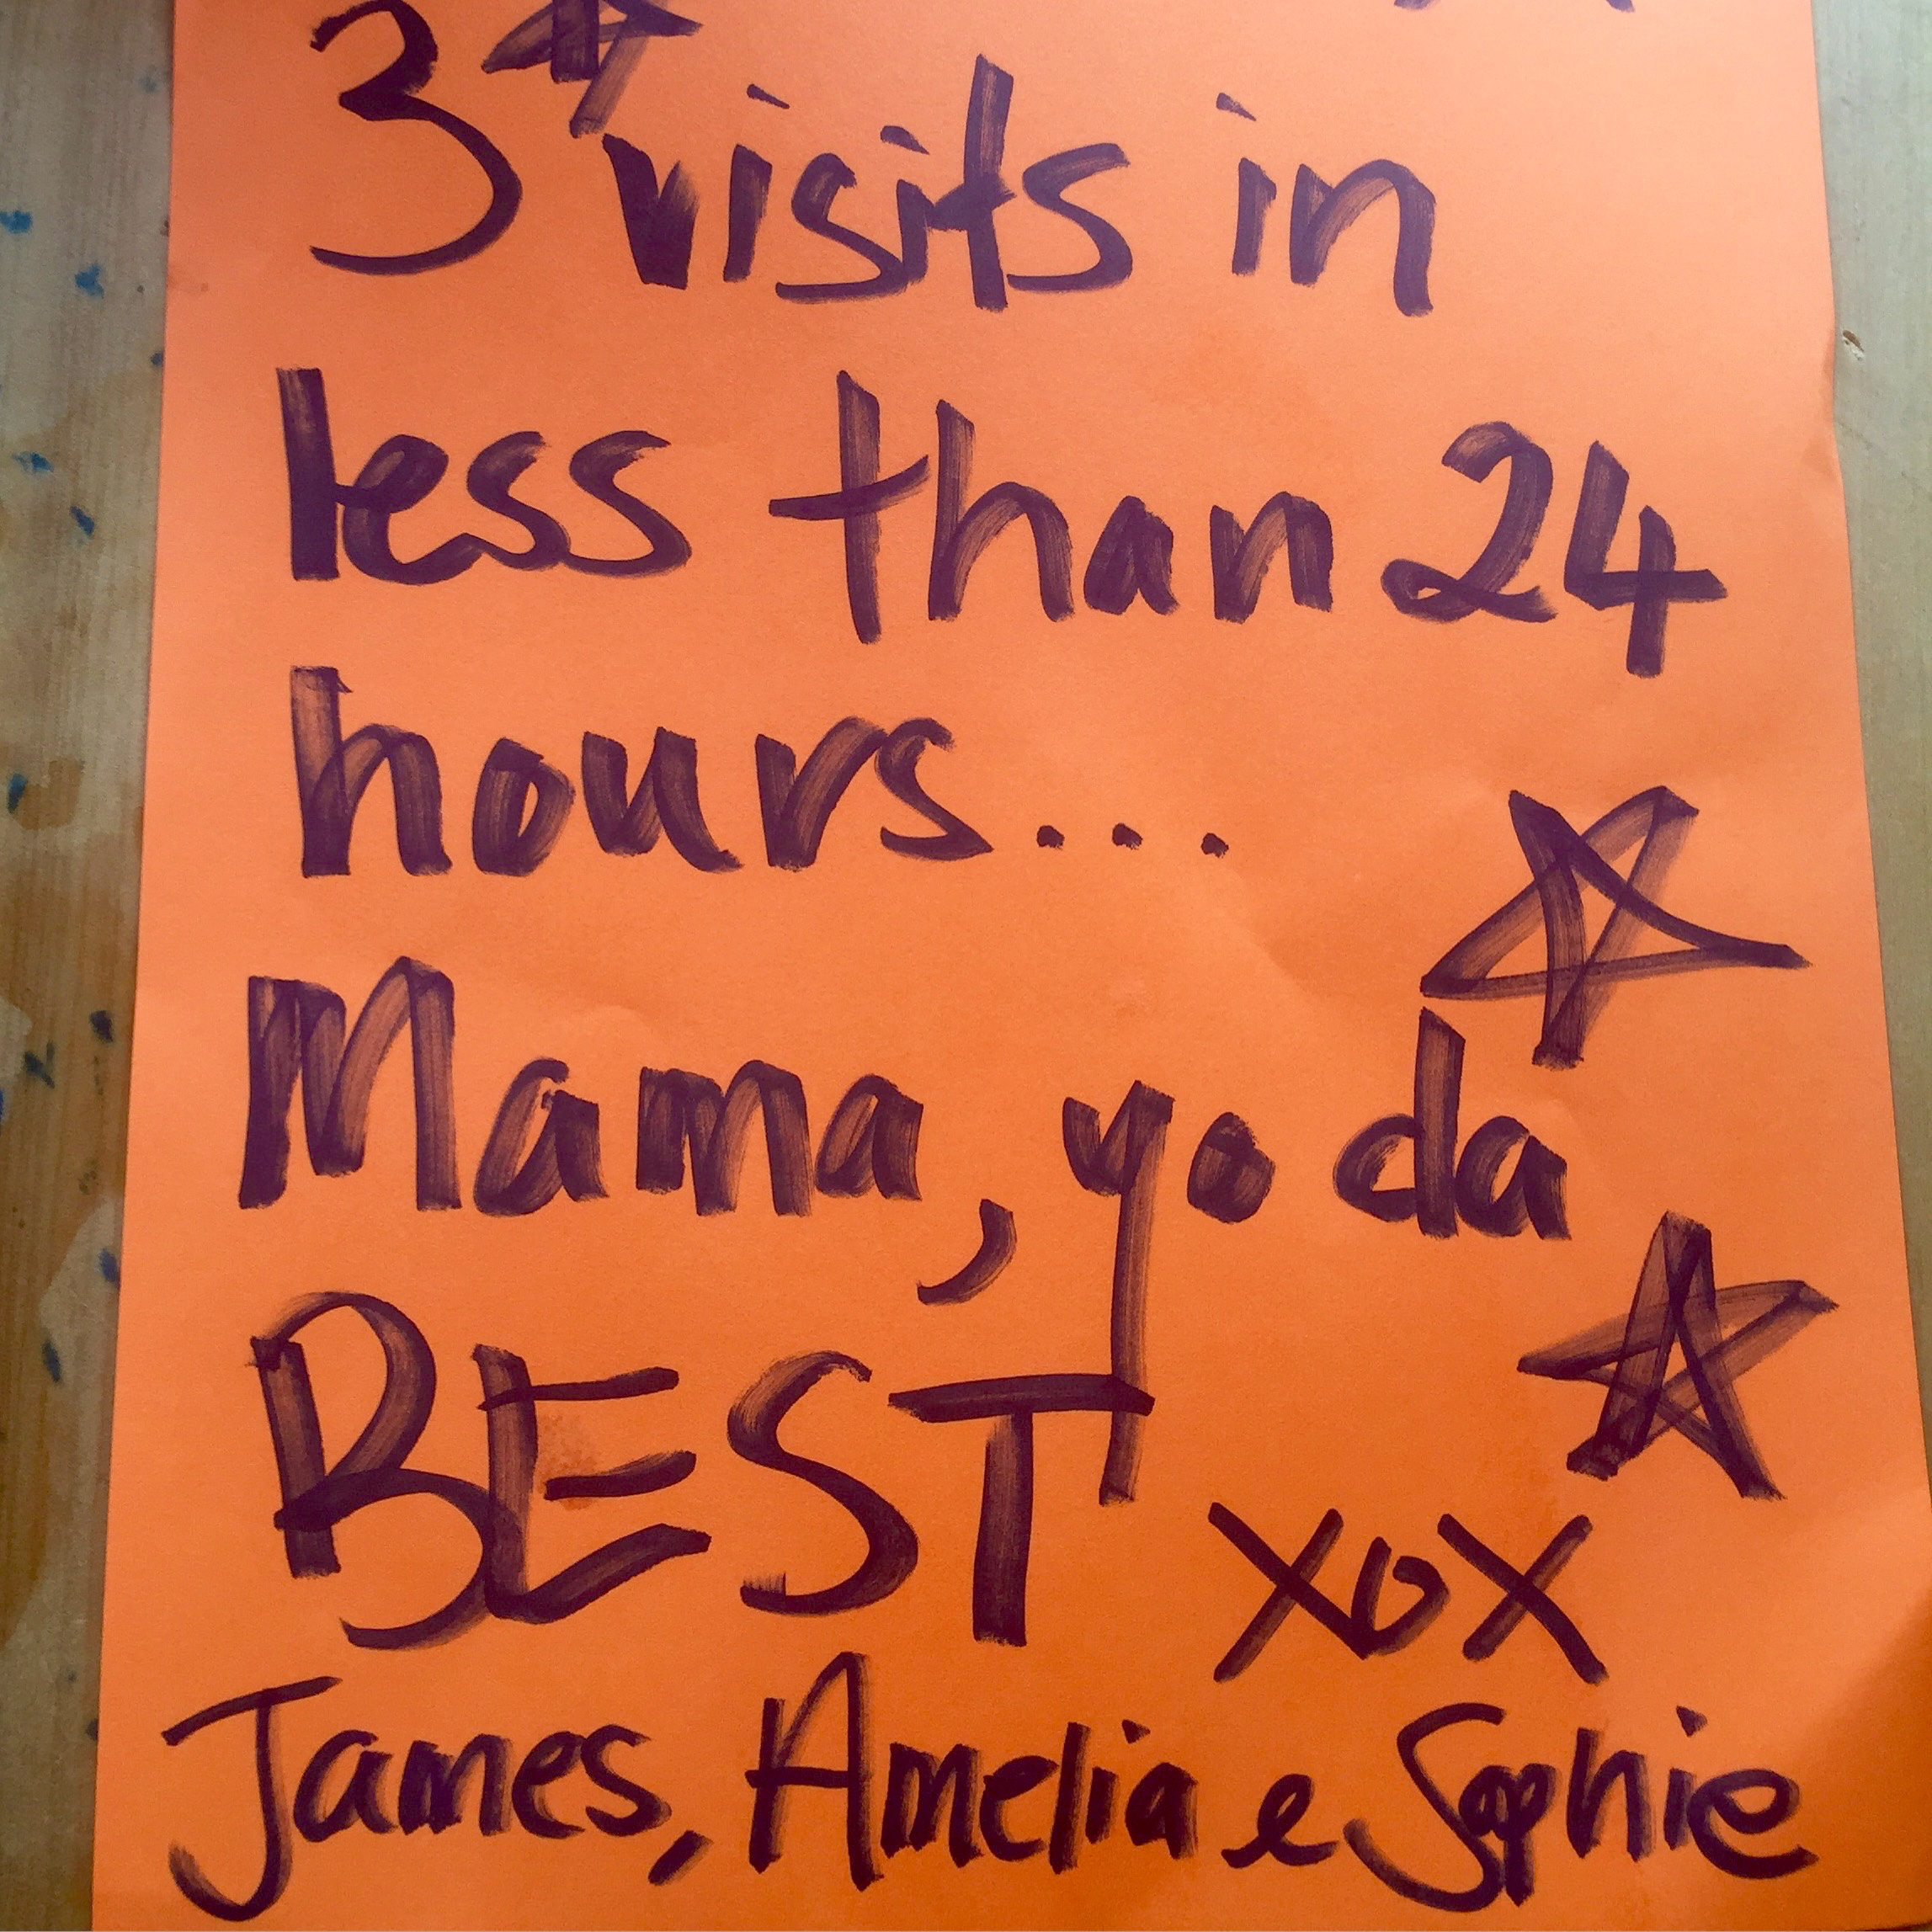 3 visits in
less than 24
hours...
Mama, yo da
BEST xox
James, Amelia e Sophie